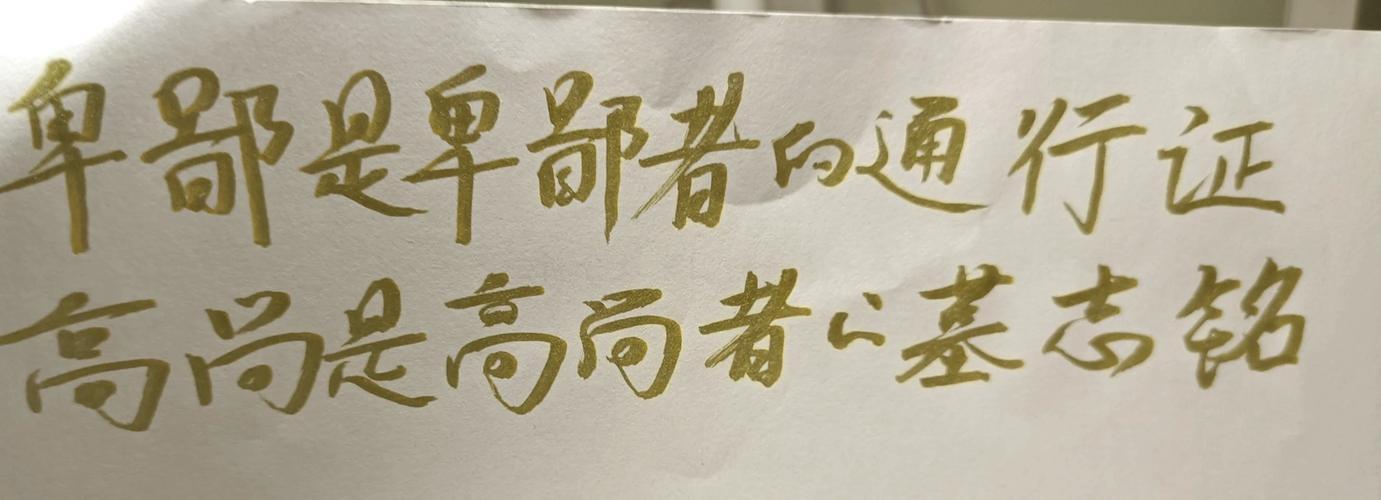 卑鄙是卑鄙者的通行证
高尚是高尚者的墓志铭